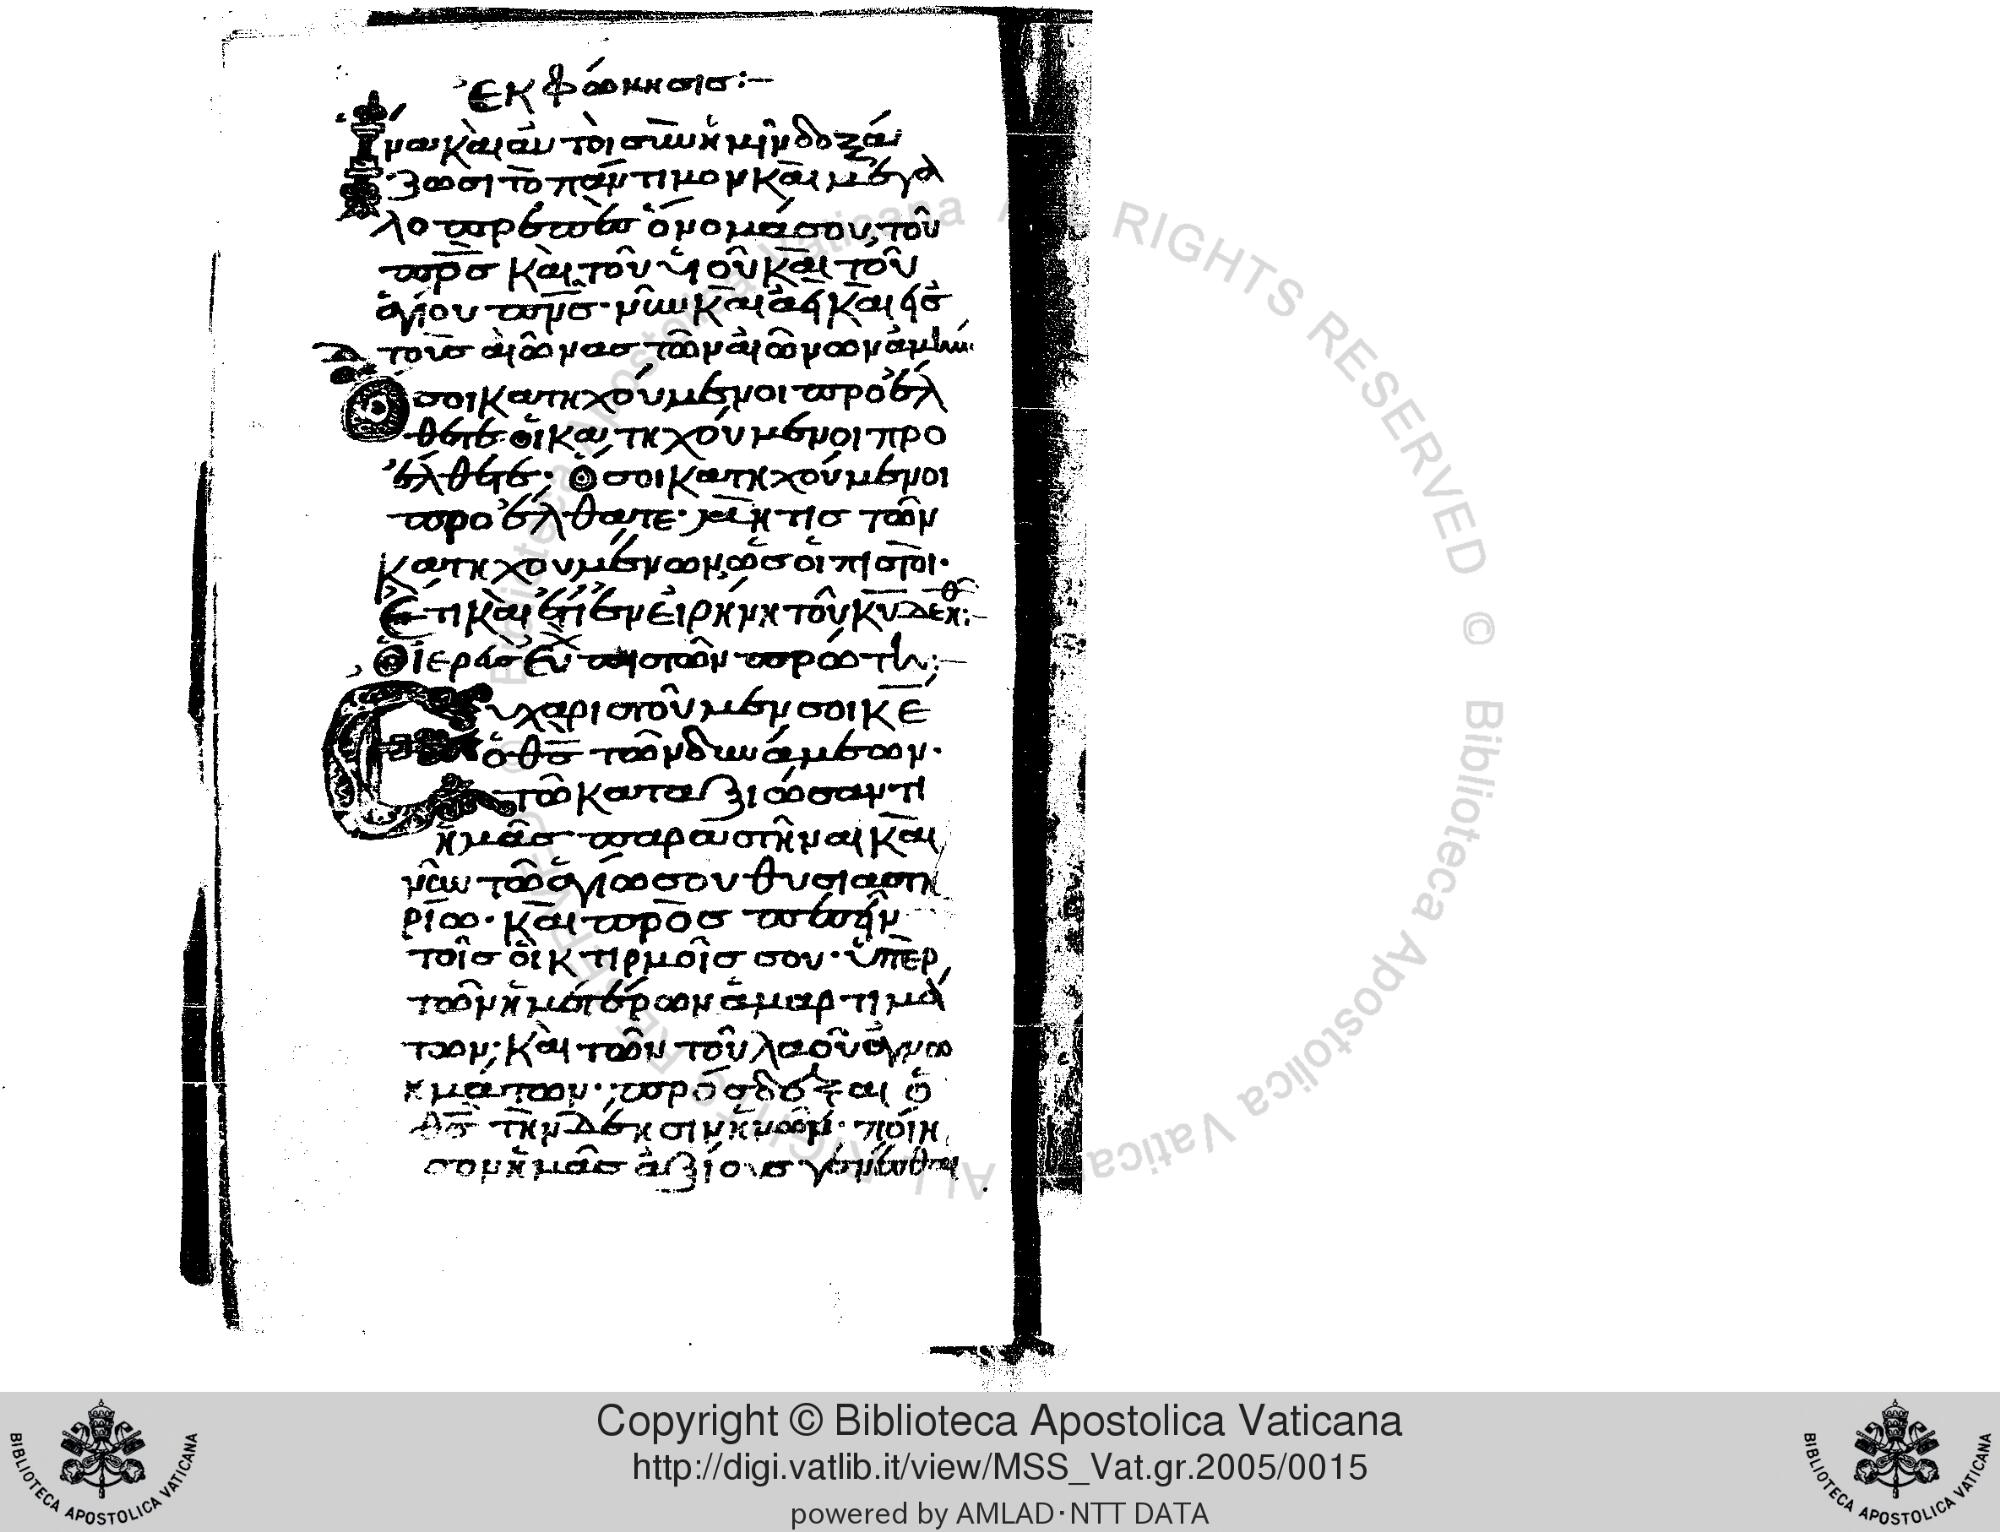 ἐκφώνησις:—
Ἵνα καὶ αὐτοὶ σὺν ἡμῖν δοξά
ζωσι τὸ πάντιμον καὶ μεγα
λοπρεπὲς ὄνομά σου, τοῦ
πρ̅ς καὶ τοῦ υἱοῦ καὶ τοῦ
ἁγίου πν̅ς· νῦν καὶ ἀεὶ καὶ εἰς
τοὺς αἰῶνας τῶν αἰώνων ἀμήν·
Ὅσοι κατηχούμενοι προέλ
θετε οἱ κατηχούμενοι προ
έλθετε· Ὅσοι κατηχούμενοι
προέλθατε· μή τις τῶν
κατηχουμένων, ὅσοι πιστοί·
Ἔτι καὶ ἔτι ἐν εἰρήνη τοῦ κ̅υ δεηθ:—
Ὁ ἱερεὺς εὐχ πιστῶν πρώτη:—
Εὐχαριστοῦμεν σοι κ̅ε
ὁ θ̅ς τῶν δυνάμεων·
τῶ καταξιώσαντι
ἡμᾶς παραστῆναι καὶ
νῦν τῶ ἁγίω σου θυσιαστη
ρίω· καὶ προσπεσεῖν
τοῖς οἰκτιρμοῖς σου· ὑπὲρ
τῶν ἡμετέρων ἁμαρτιμά
των· καὶ τῶν τοῦ λαοῦ ἀγνο
ημάτων· πρόσδεξαι ὁ
θ̅ς τὴν δέησιν ἡμῶν· ποίη
σον ἡμᾶς ἀξίους γενέσθαι
Copyright © Biblioteca Apostolica Vaticana
http://digi.vatlib.it/view/MSS_Vat.gr.2005/0015
powered by AMLAD·NTT DATA
BIBLIOTECA APOSTOLICA VATICANA
BIBLIOTECA APOSTOLICA VATICANA
© Biblioteca Apostolica Vaticana ALL RIGHTS RESERVED © Biblioteca Apostolica Vaticana ALL RIGHTS RESERVED